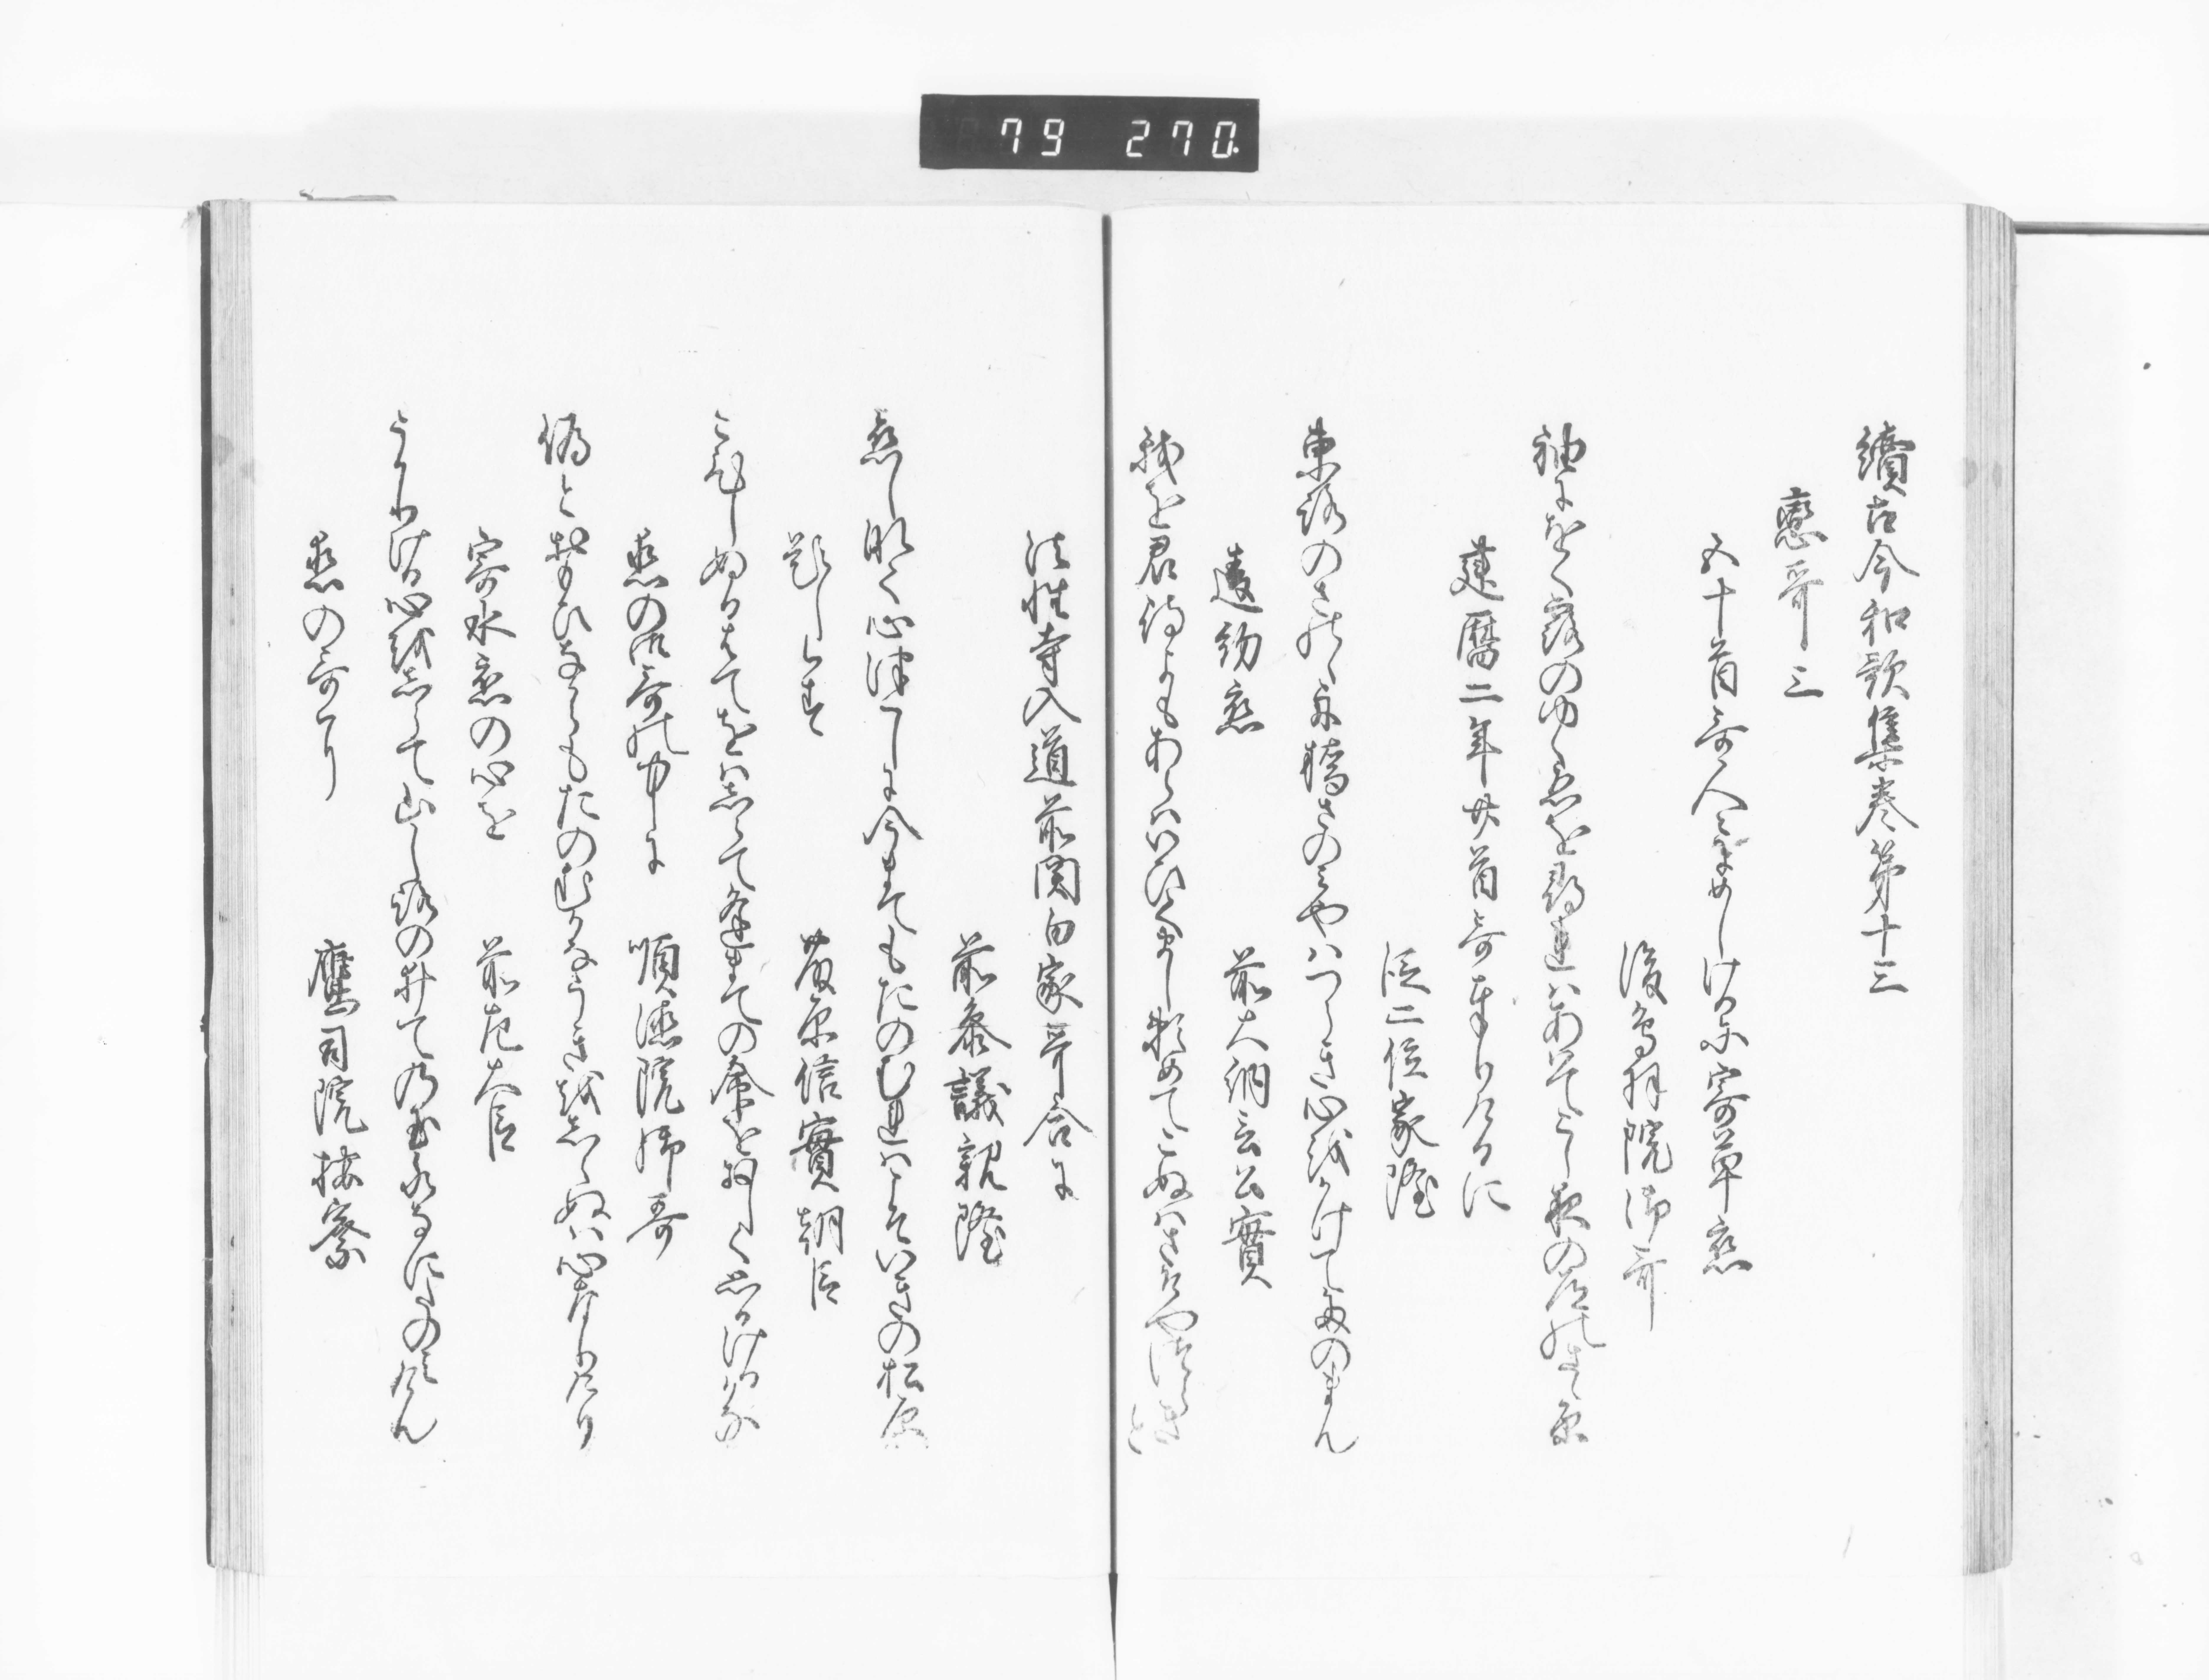 79 270.
續古今和歌集巻第十三
戀哥三
五十首哥人々にめしける時寄草恋
後鳥羽院御哥
袖にをく露のゆくゑを尋れはあはてこし夜の道のさゝ原
建暦二年廿首哥奉りけるに
従二位家隆
東路のさのゝ舟橋さのみやはつらき心をかけてたのまん
遠約恋
前大納言公實
我を君待よもあらはいひてまし頼めてこぬはさそやつらきと
法性寺入道前関白家哥合に
前参議親隆
恋し
心
に今まてもたのむれはこそいきの松原
題しらす
藤原信實朝臣
こひしぬるはてをはしらて逢まての命をおしく思ひける哉
恋の御哥の中に
順徳院御哥
偽とおもひなからもたのむかなうきをしらぬは心なりけり
寄水恋の心を
前左大臣
うかりける心をしらて山しろの井ての玉水なにたのみけん
恋の哥とて
鷹司院按察